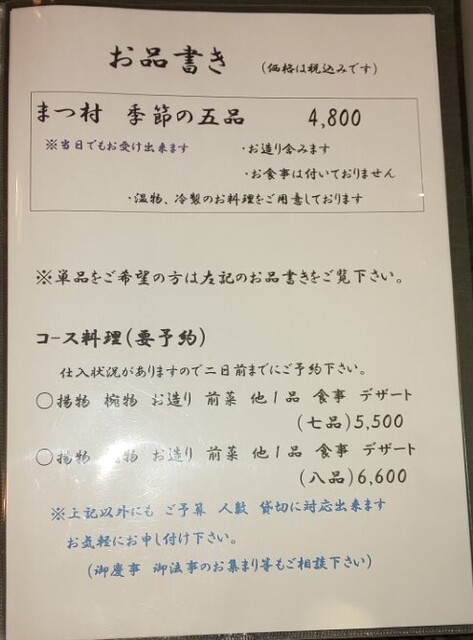 お品書き (価格は税込みです)
まつ村 季節の五品 4,800
※当日でもお受け出来ます ・お造り含みます
・お食事は付いておりません
・温物、冷製のお料理をご用意しております
※単品をご希望の方は左記のお品書きをご覧下さい。
コース料理(要予約)
仕入状況がありますので二日前までにご予約下さい。
〇揚物 椀物 お造り 前菜 他1品 食事 デザート
(七品)5,500
〇揚物 物 お造り 前菜 他1品 食事 デザート
(八品)6,600
※上記以外にも ご予算 人数 貸切に対応出来ます
お気軽にお申し付け下さい。
(御慶事 御法事のお集まり等もご相談下さい)